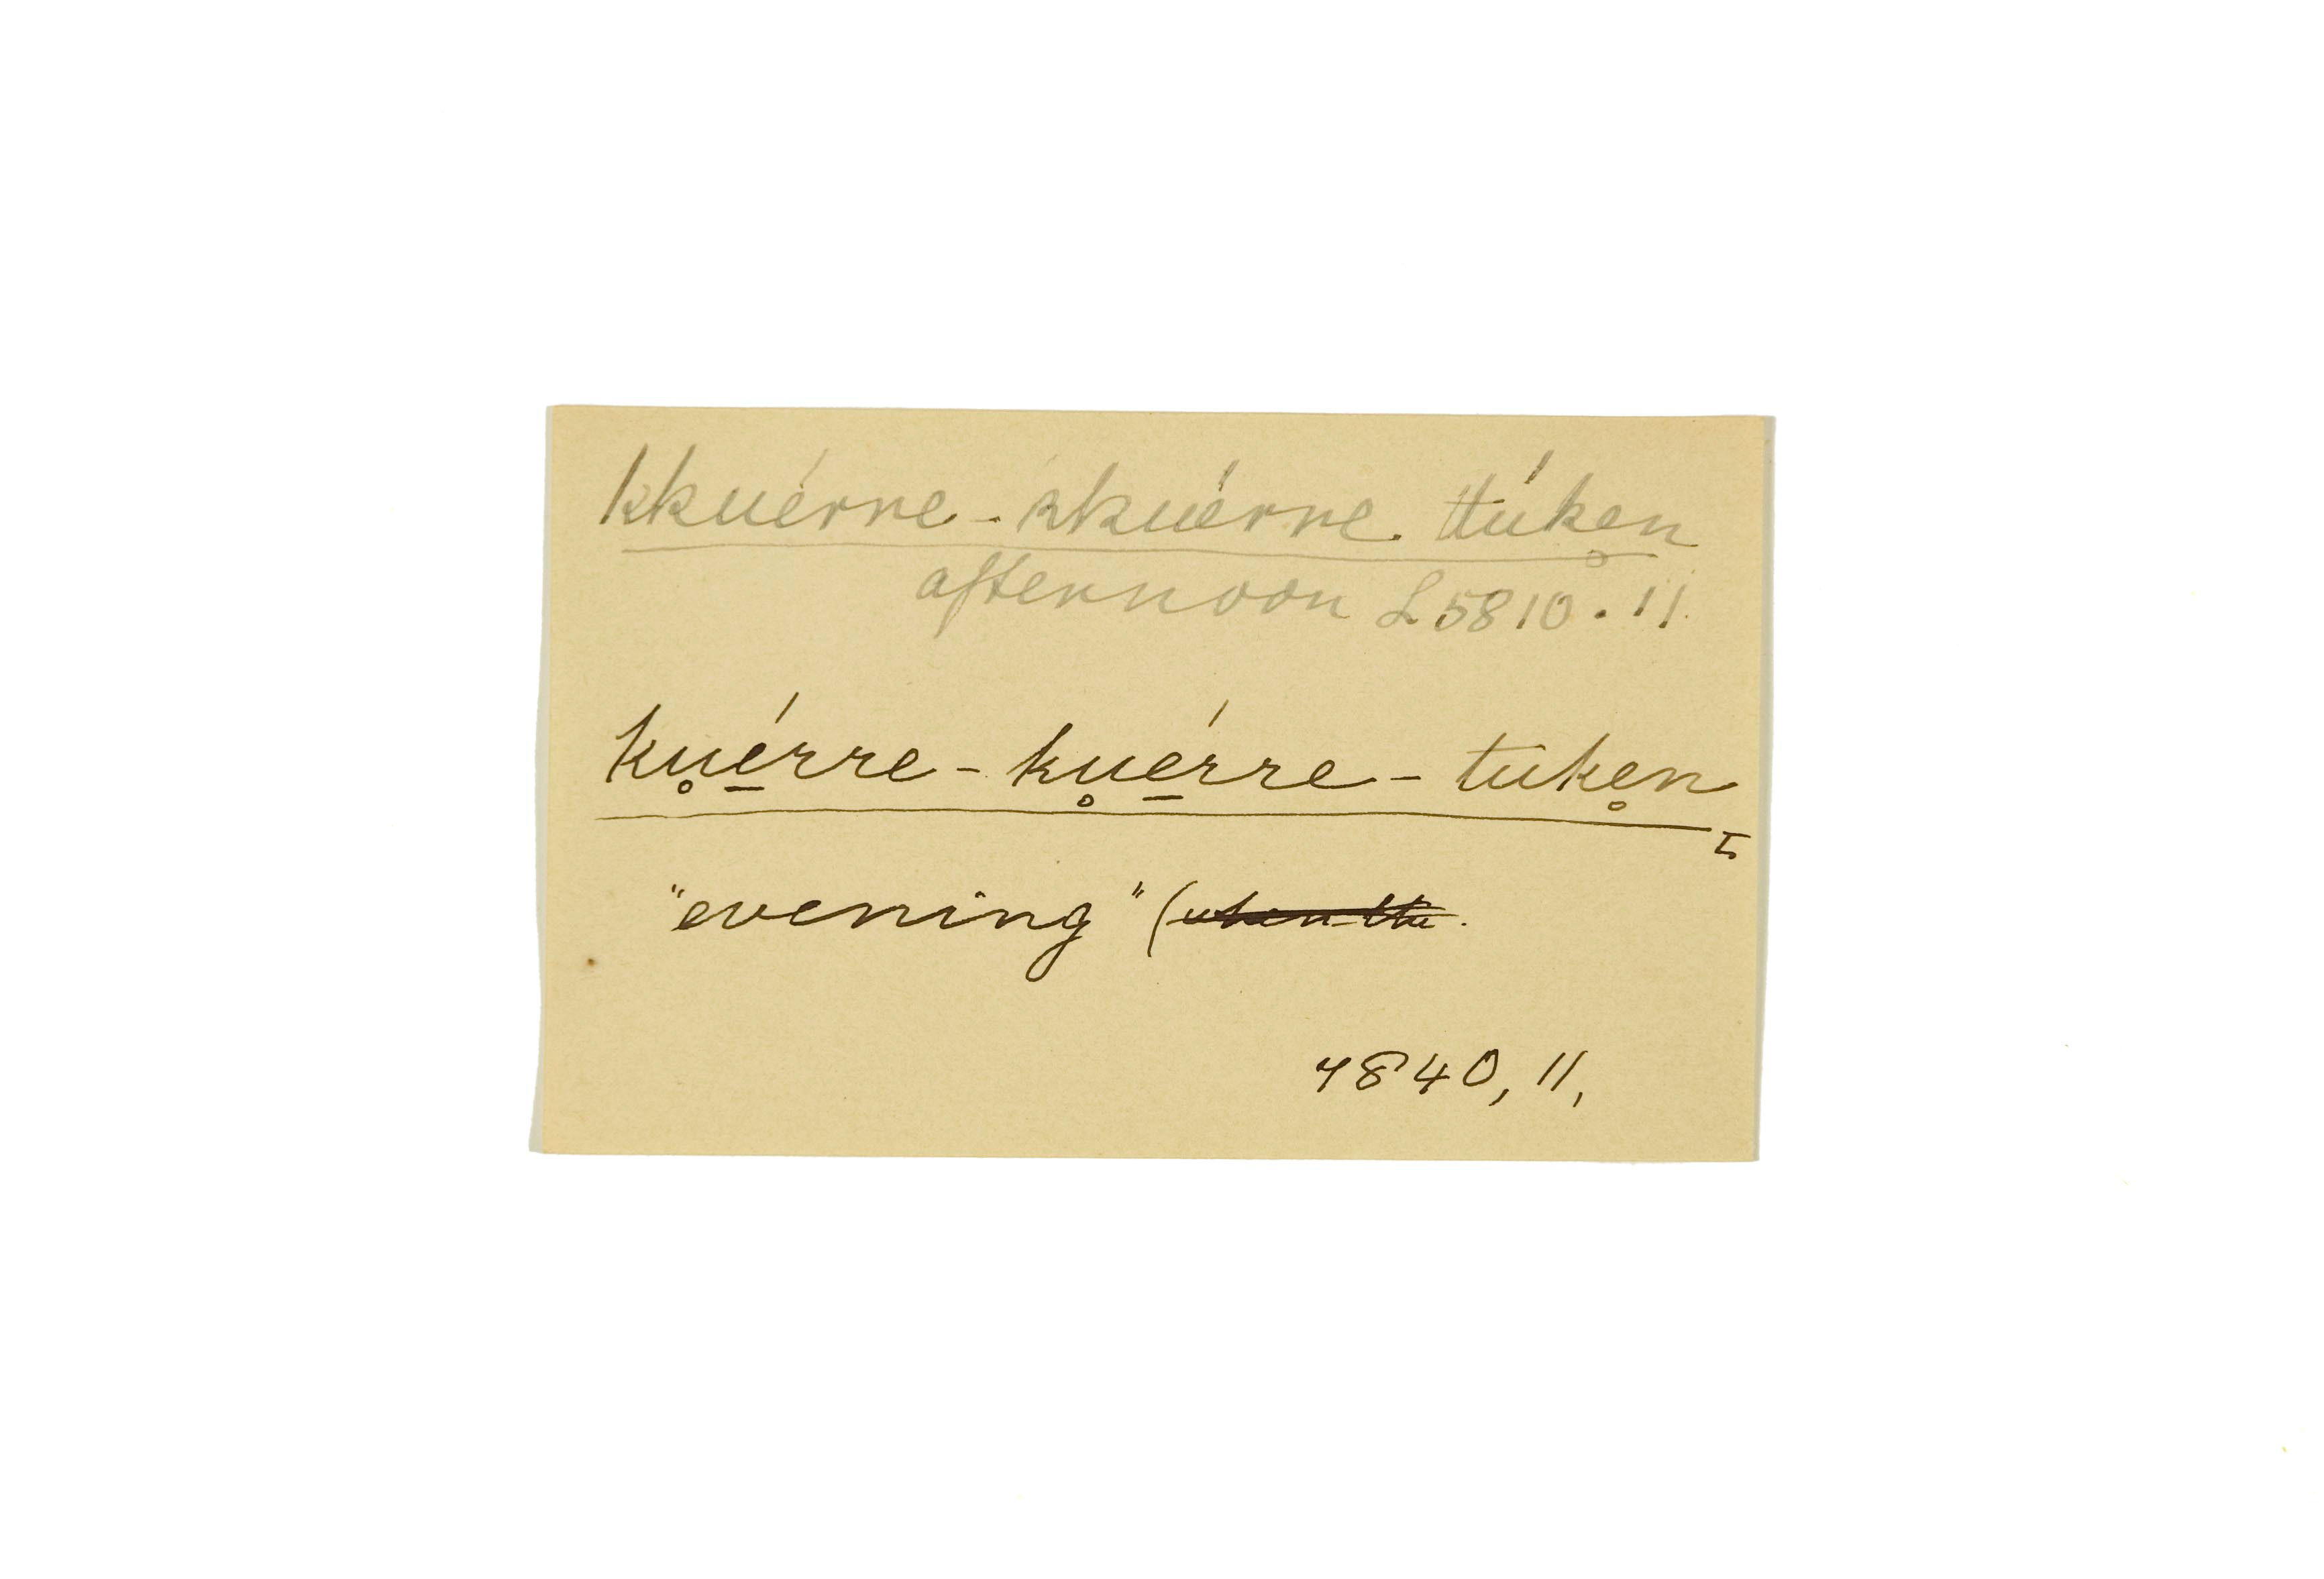 kkuérre-kkuérre. ttúken̥
afternoon L 5810. 11.
ku̥é̱rre - ku̥é̱rre - tuke̥n
"evening" (when the.
4840, 11,